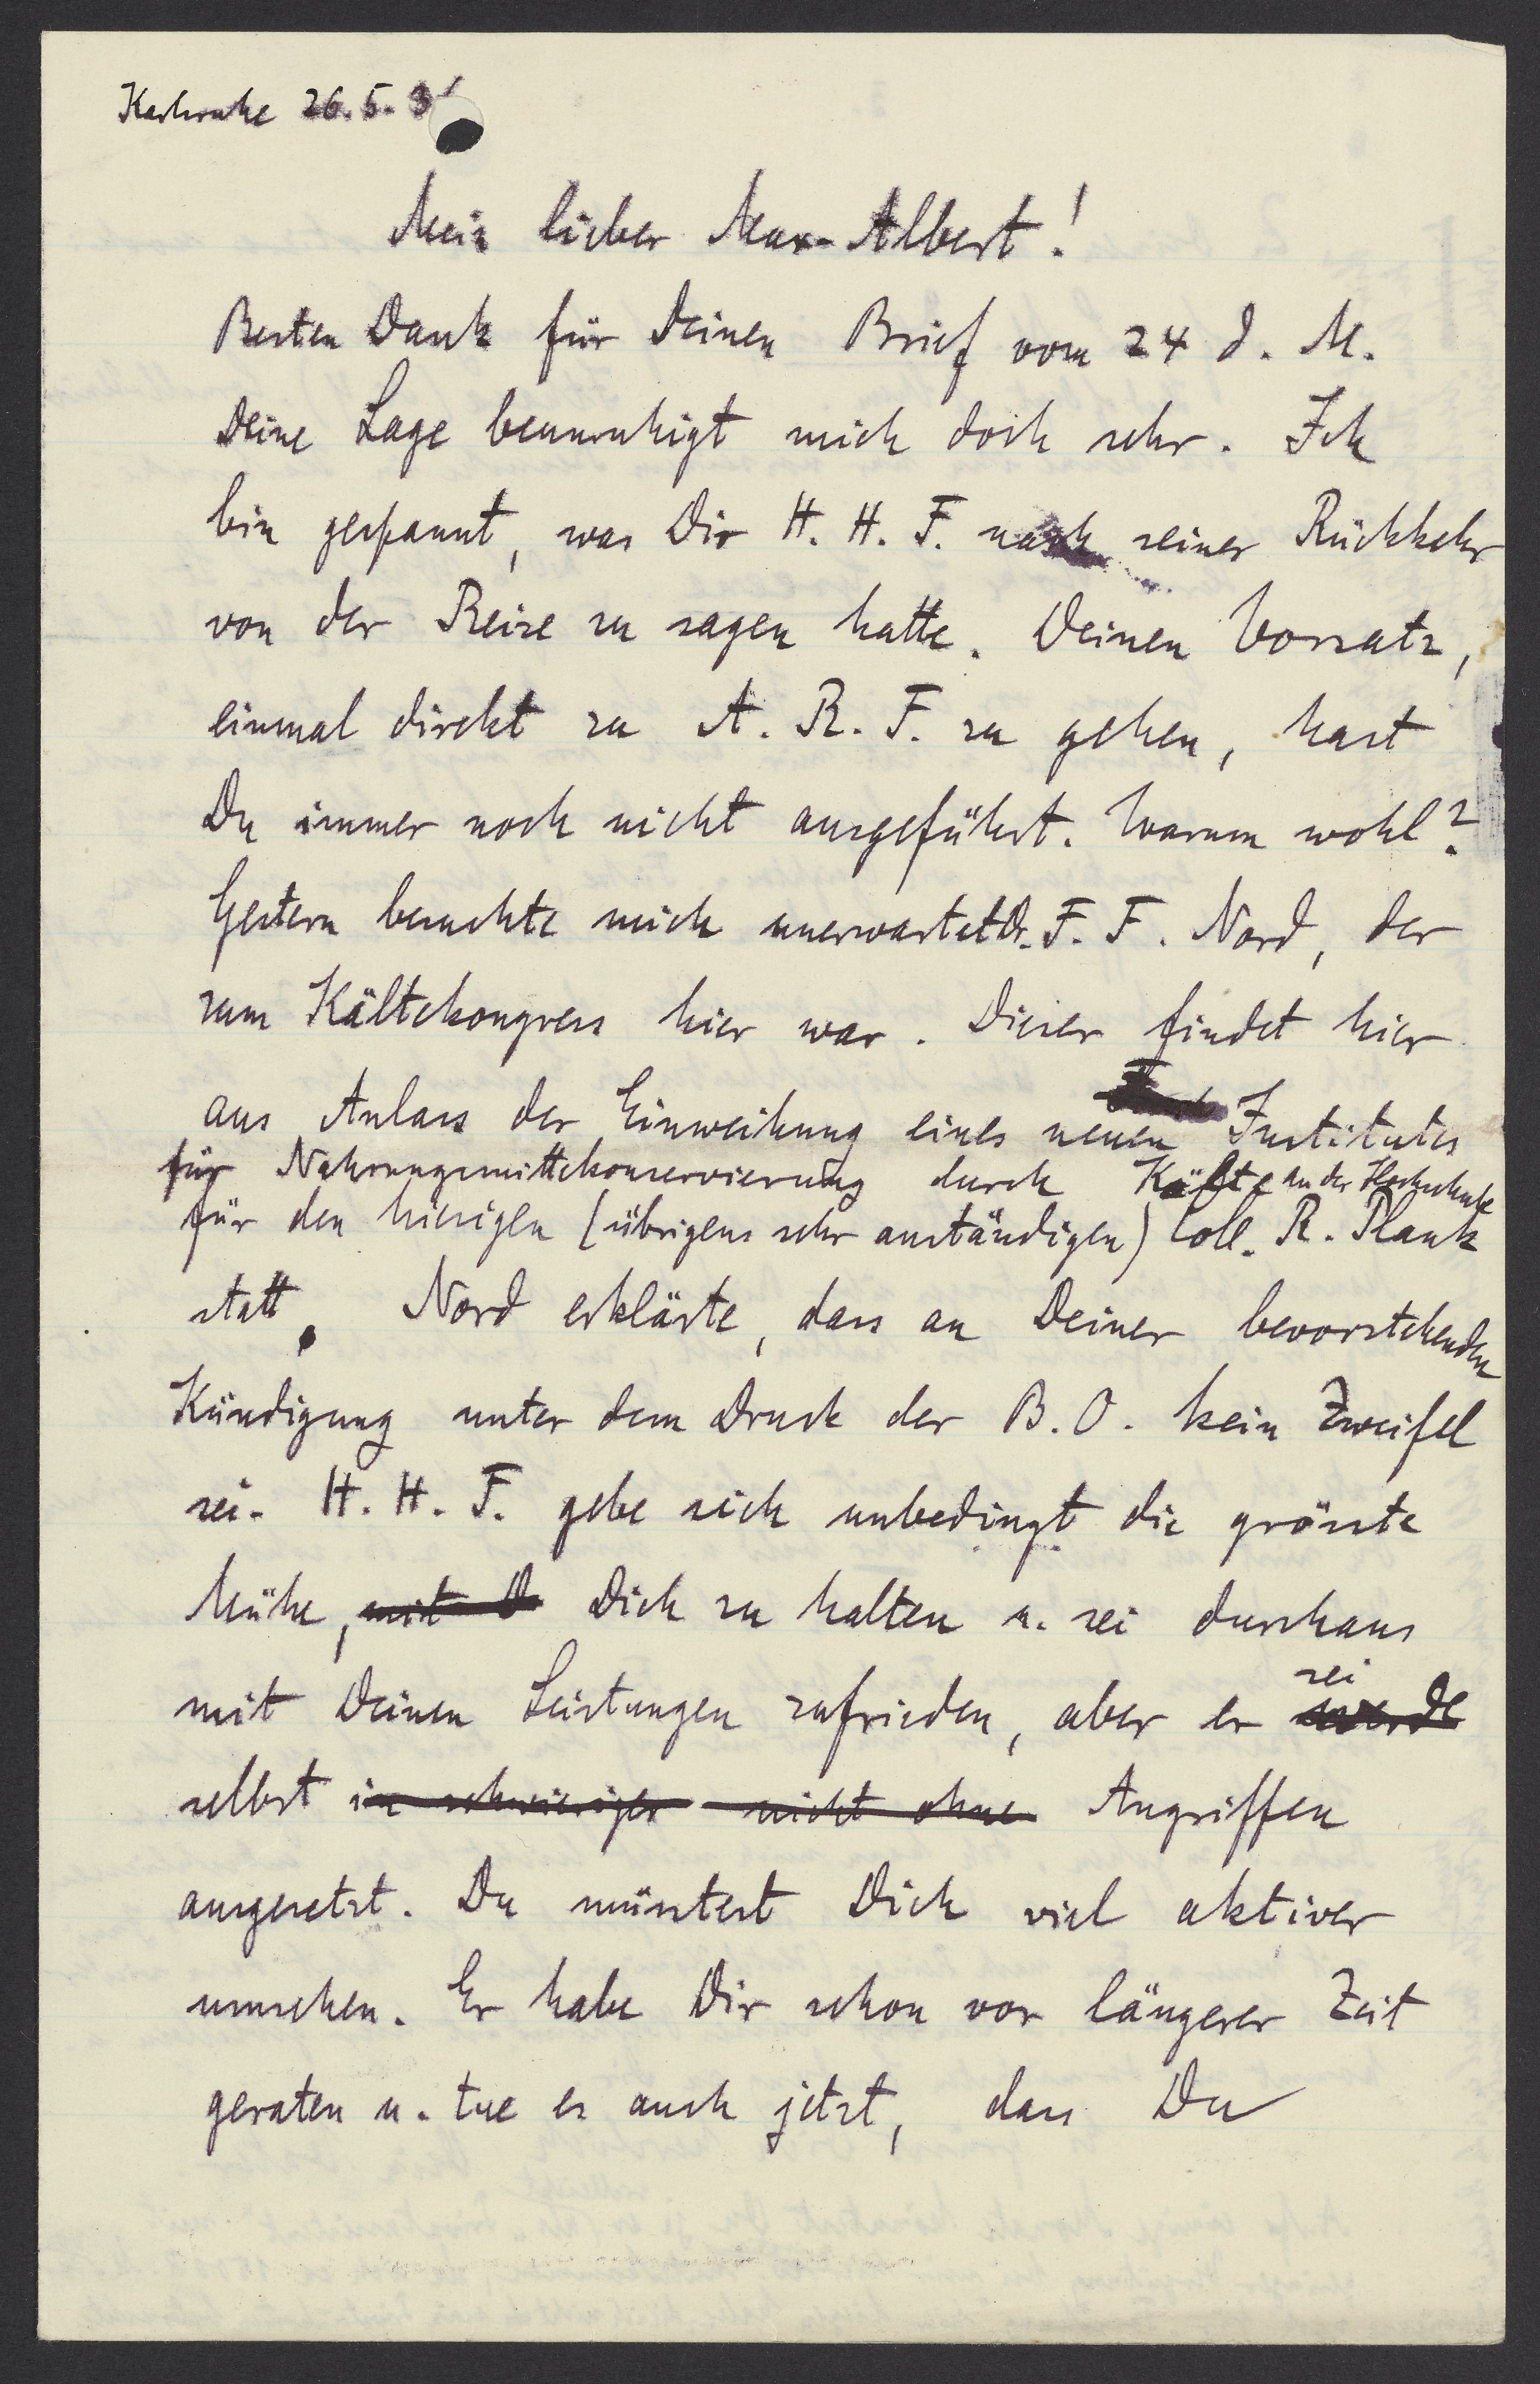 Karlsruhe 26.5.3
Mein lieber Max-Albert!
Besten Dank für Deinen Brief vom 24 d. M.
Deine Lage beunruhigt mich doch sehr. Ich
bin gespannt, was Dir H. H. F. nach seiner Rückkehr
von der Reise zu sagen hatte. Deinen Vorsatz,
einmal direkt zu A. R. F. zu gehen, hast
Du immer noch nicht ausgeführt. Warum wohl?
Gestern besuchte mich unerwartet Dr. F. F. Nord, der
zum Kältekongress hier war. Dieser findet hier
aus Anlass der Einweihung eines neuen Institutes
für Nahrungsmittelkonservierung durch Kälte an der Hochschule
für den hiesigen (übrigens sehr anständigen) Coll. R. Plank
statt. Nord erklärte, dass an Deiner bevorstehenden
Kündigung unter dem Druck der B.O. kein Zweifel
sei. H. H. F. gebe sich unbedingt die grösste
Mühe, mit D Dich zu halten u. sei durchaus
mit Deinen Leistungen zufrieden, aber er werde sei
selbst in schwieriger nicht ohne Angriffen
ausgesetzt. Du müsstest Dich viel aktiver
umsehen. Er habe Dir schon vor längerer Zeit
geraten u. tue es auch jetzt, dass Du